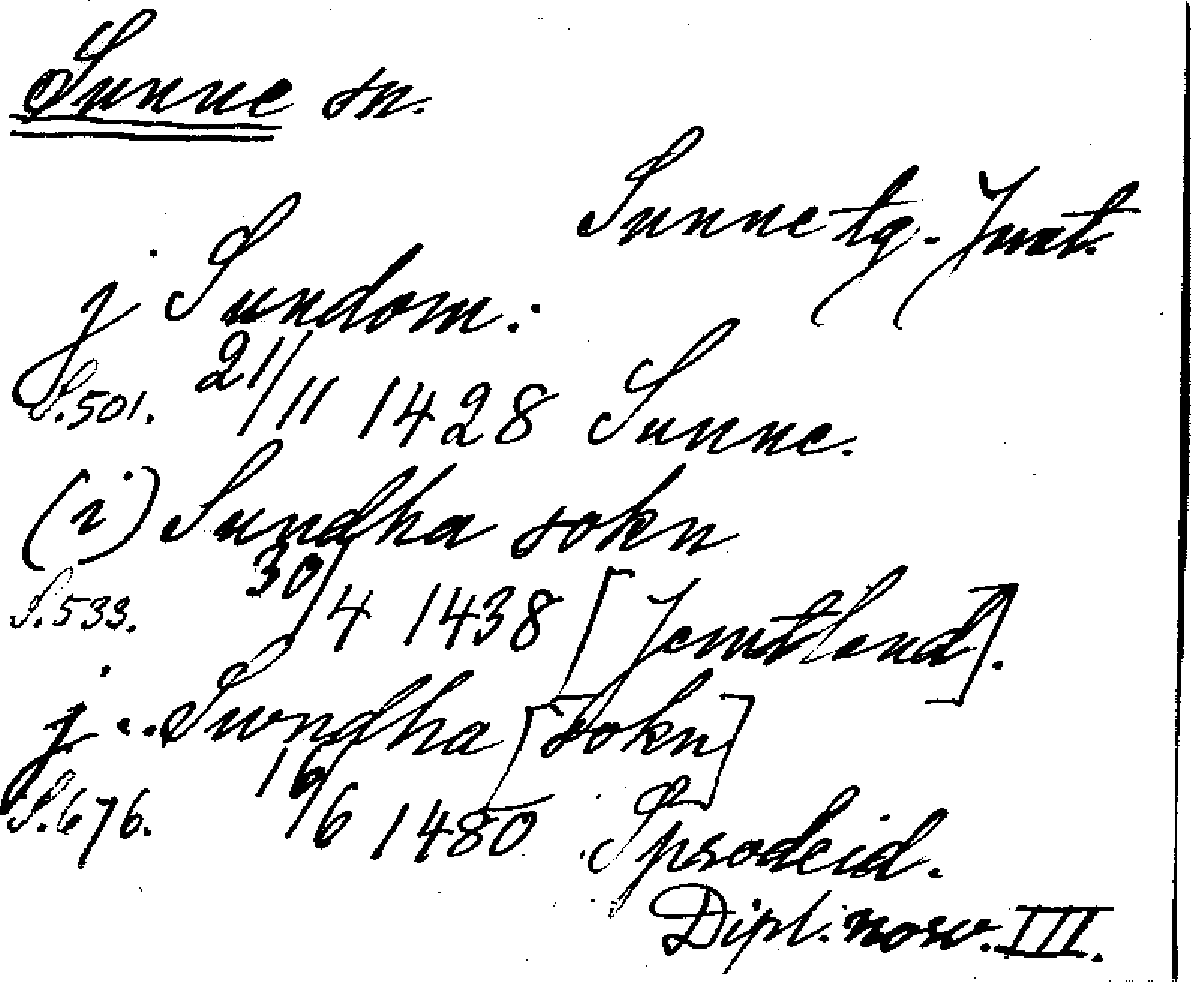 Sunne sn.
Sunne tg. Jmt.
j Sundom:
S.501. 21/11 1428 Sunne.
(i) Sundha sokn
S.533. 30/4 1438 [Jemtland].
j .. Swndha [sokn]
S.676. 16/6 1480 Sprodeid.
Dipl. norv. III.